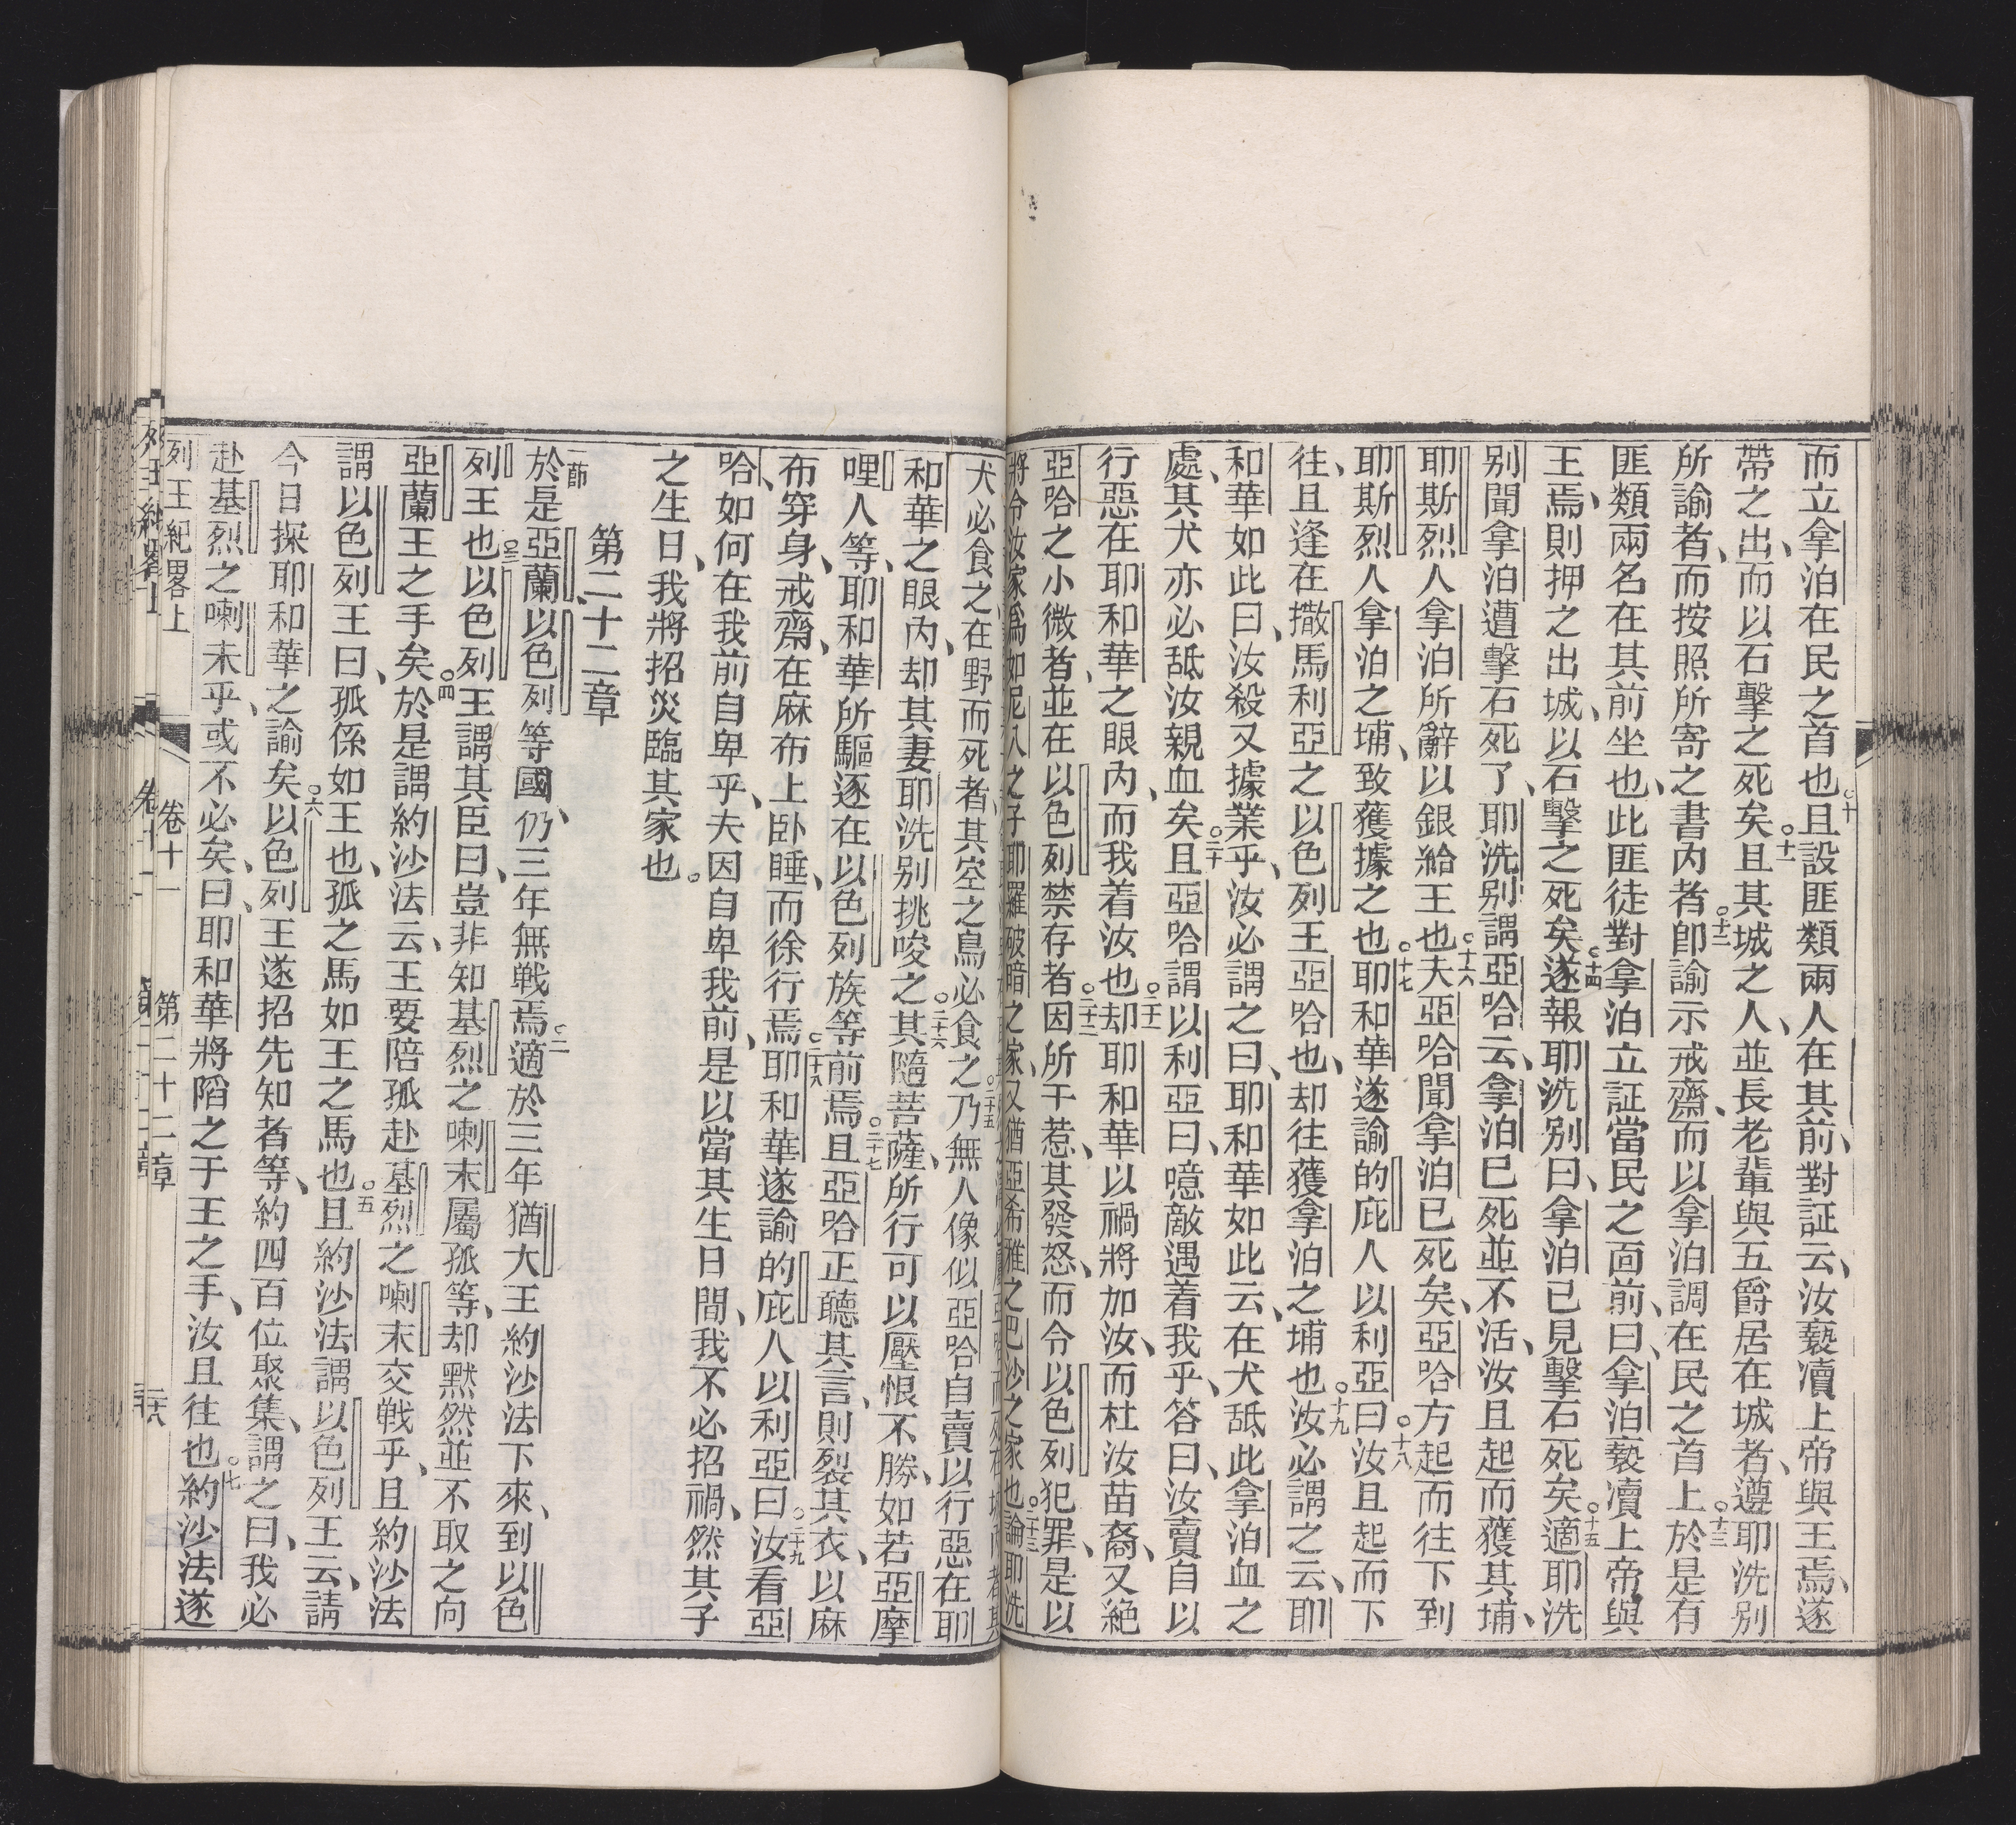 而立拿泊在民之首也○十且設匪類兩人在其前、對証云、汝褻瀆上帝與王焉、遂
帶之出、而以石擊之死矣○十一且其城之人、並長老輩與五爵居在城者、遵耶洗別
所諭者、而按照所寄之書內者○十二卽諭示戒齋、而以拿泊調在民之首上○十三於是有
匪類兩名在其前坐也、此匪徒對拿泊立証當民之面前、曰、拿泊褻瀆上帝與
王焉、則押之出城、以石擊之死矣○十四遂報耶洗別曰、拿泊已見擊石死矣○十五適耶洗
別聞拿泊遭擊石死了、耶洗別謂亞哈云、拿泊已死並不活、汝且起而獲其埔、
耶斯烈人拿泊所辭以銀給王也○十六夫亞哈聞拿泊已死矣、亞哈方起而往下到
耶斯烈人拿泊之埔、致獲據之也○十七耶和華遂諭的庇人以利亞曰○十八汝且起而下
往、且逢在撒馬利亞之以色列王亞哈也、却往獲拿泊之埔也○十九汝必謂之云、耶
和華如此曰、汝殺又據業乎、汝必謂之曰、耶和華如此云、在犬舐此拿泊血之
處、其犬亦必舐汝親血矣○二十且亞哈謂以利亞曰、噫敵遇着我乎、答曰、汝賣自以
行惡在耶和華之眼內、而我着汝也○二十一却耶和華以禍將加汝、而杜汝苗裔、又絶
亞哈之小微者、並在以色列禁存者○二十二因所干惹、其發怒、而令以色列犯罪、是以
將令汝家爲如尼八之子耶羅破暗之家、又猶亞希雅之巴沙之家也○二十三論耶洗
犬必食之在野而死者、其空之鳥必食之○二十五乃無人像似亞哈自賣以行惡在耶
和華之眼內、却其妻耶洗別挑唆之○二十六其隨菩薩、所行可以壓恨不勝、如若亞摩
哩人等、耶和華所驅逐在以色列族等前焉○二十七且亞哈正聽其言、則裂其衣、以麻
布穿身、戒齋、在麻布上臥睡、而徐行焉○二十八耶和華遂諭的庇人以利亞曰○二十九汝看亞
哈如何在我前自卑乎、夫因自卑我前、是以當其生日間、我不必招禍、然其子
之生日、我將招災臨其家也。
第二十二章
一節於是亞蘭、以色列等國、仍三年無戰焉○二適於三年猶大王約沙法下來、到以色
列王也○三以色列王謂其臣曰、豈非知基烈之喇末屬孤等、却默然並不取之向
亞蘭王之手矣○四於是謂約沙法云、王要陪孤赴基烈之喇末交戰乎、且約沙法
謂以色列王曰、孤係如王也、孤之馬如王之馬也○五且約沙法謂以色列王云、請
今日探耶和華之諭矣○六以色列王遂招先知者等、約四百位聚集、謂之曰、我必
赴基烈之喇末乎、或不必矣、曰、耶和華將陷之于王之手、汝且往也○七約沙法遂
列王紀畧上 卷十一 第二十二章